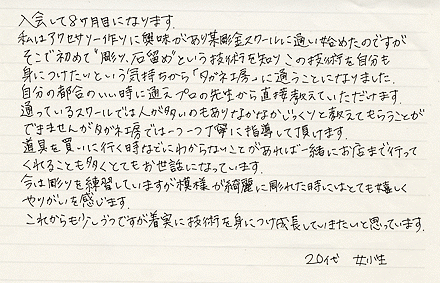 入会して8ヶ月目になります。
私はアクセサリー作りに興味があり某彫金スクールに通い始めたのですが
そこで初めて"彫り、石留め"という技術を知りこの技術を自分も
身につけたいという気持ちから「タガネ工房」に通うことになりました。
自分の都合のいい時に通えプロの先生から直接教えていただけます。
通っているスクールでは人が多いのもありなかなかじっくりと教えてもらうことが
できませんがタガネ工房では一つ一つ丁寧に指導して頂けます。
道具を買いに行く時などにわからないことがあれば一緒にお店まで行って
くれることも多くとてもお世話になっています。
今は彫りを練習していますが模様が綺麗に彫れた時にはとても嬉しく
やりがいを感じます。
これからも少しづつですが着実に技術を身につけ成長していきたいと思っています。
20代 女性